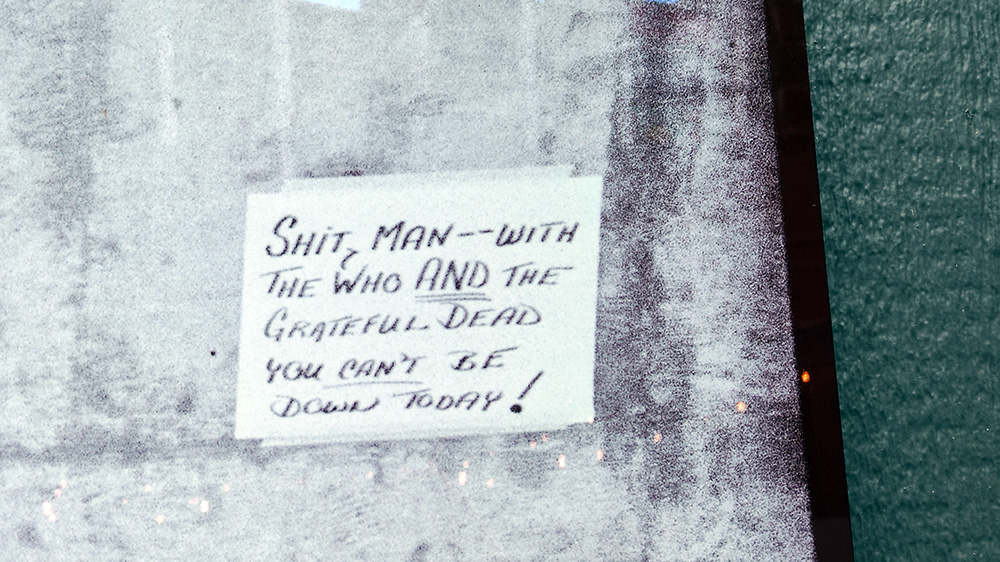 SHIT, MAN--WITH
THE WHO AND THE
GRATEFUL DEAD
YOU CAN'T BE
DOWN TODAY!